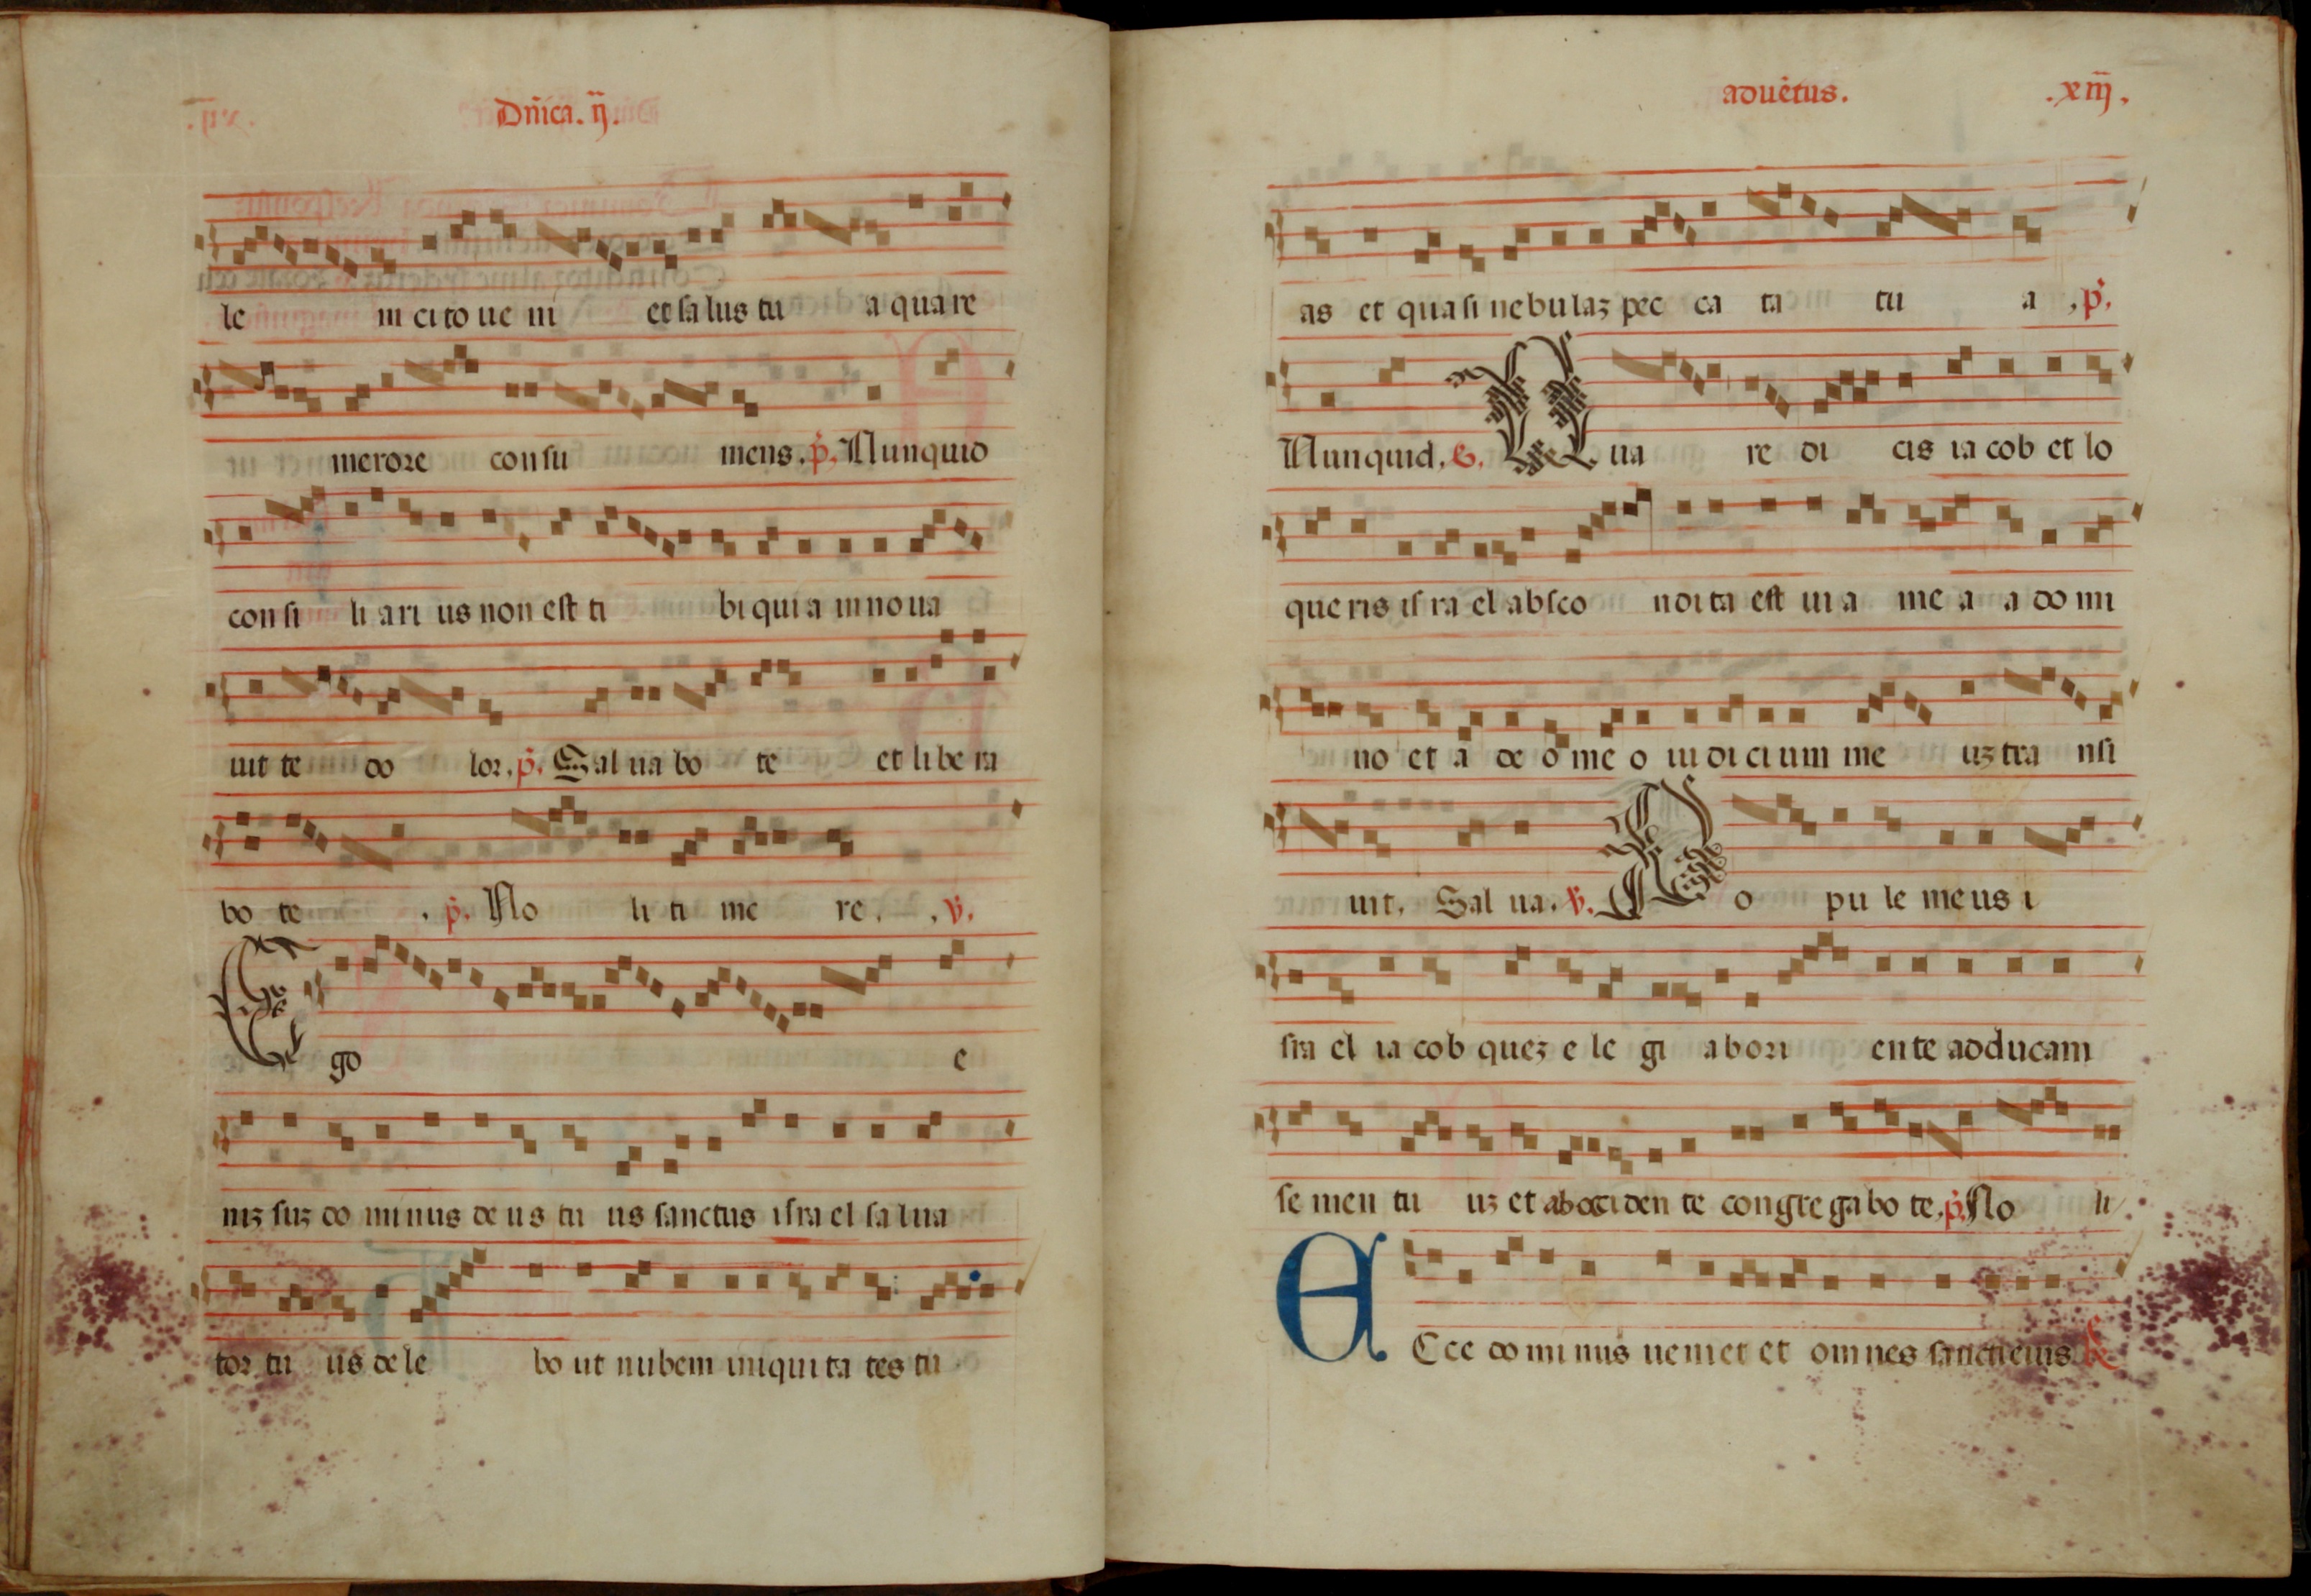 Dñica. ij.
le m cito ue ni et sa lus tu a qua re
merore con su mens. p̃. Nunquid
con si li ari us non est ti bi qui a in no ua
uit te do lor. p̃. Sal ua bo te et li be ra
bo te . p̃. No li ti me re . ṽ.
E go e
niz suz do minus de us tu us sanctus isra el sa lua
tor tu us de le bo ut nubem iniqui ta tes tu
aduẽtus. .xiij.
as et qua si nebulaz pec ca ta tu a . p̃.
Nunquid. Qua re di cis ia cob et lo
que ris is ra el absco ndi ta est ui a me a a do mi
no et a de o me o iu di ci um me uz tra nsi
uit. Sal ua. ṽ. Po pu le me us i
sra el ia cob quez e le gi ab ori ente adducam
se men tu uz et ab occiden te congre gabo te. p̃. No li
E Cce do mi nus ueniet et omnes sancti eius